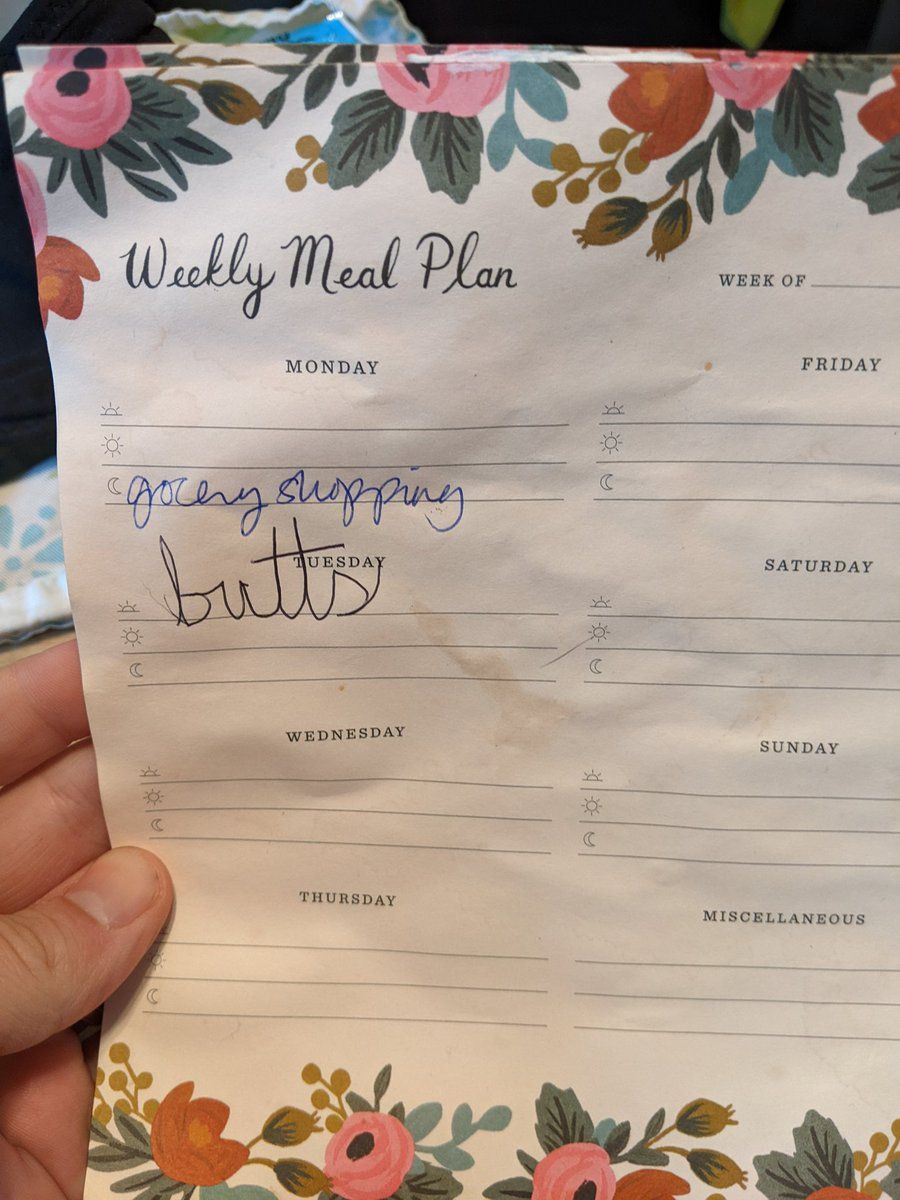 Weekly Meal Plan
WEEK OF
MONDAY
grocery shopping
TUESDAY
butts
WEDNESDAY
THURSDAY
FRIDAY
SATURDAY
SUNDAY
MISCELLANEOUS